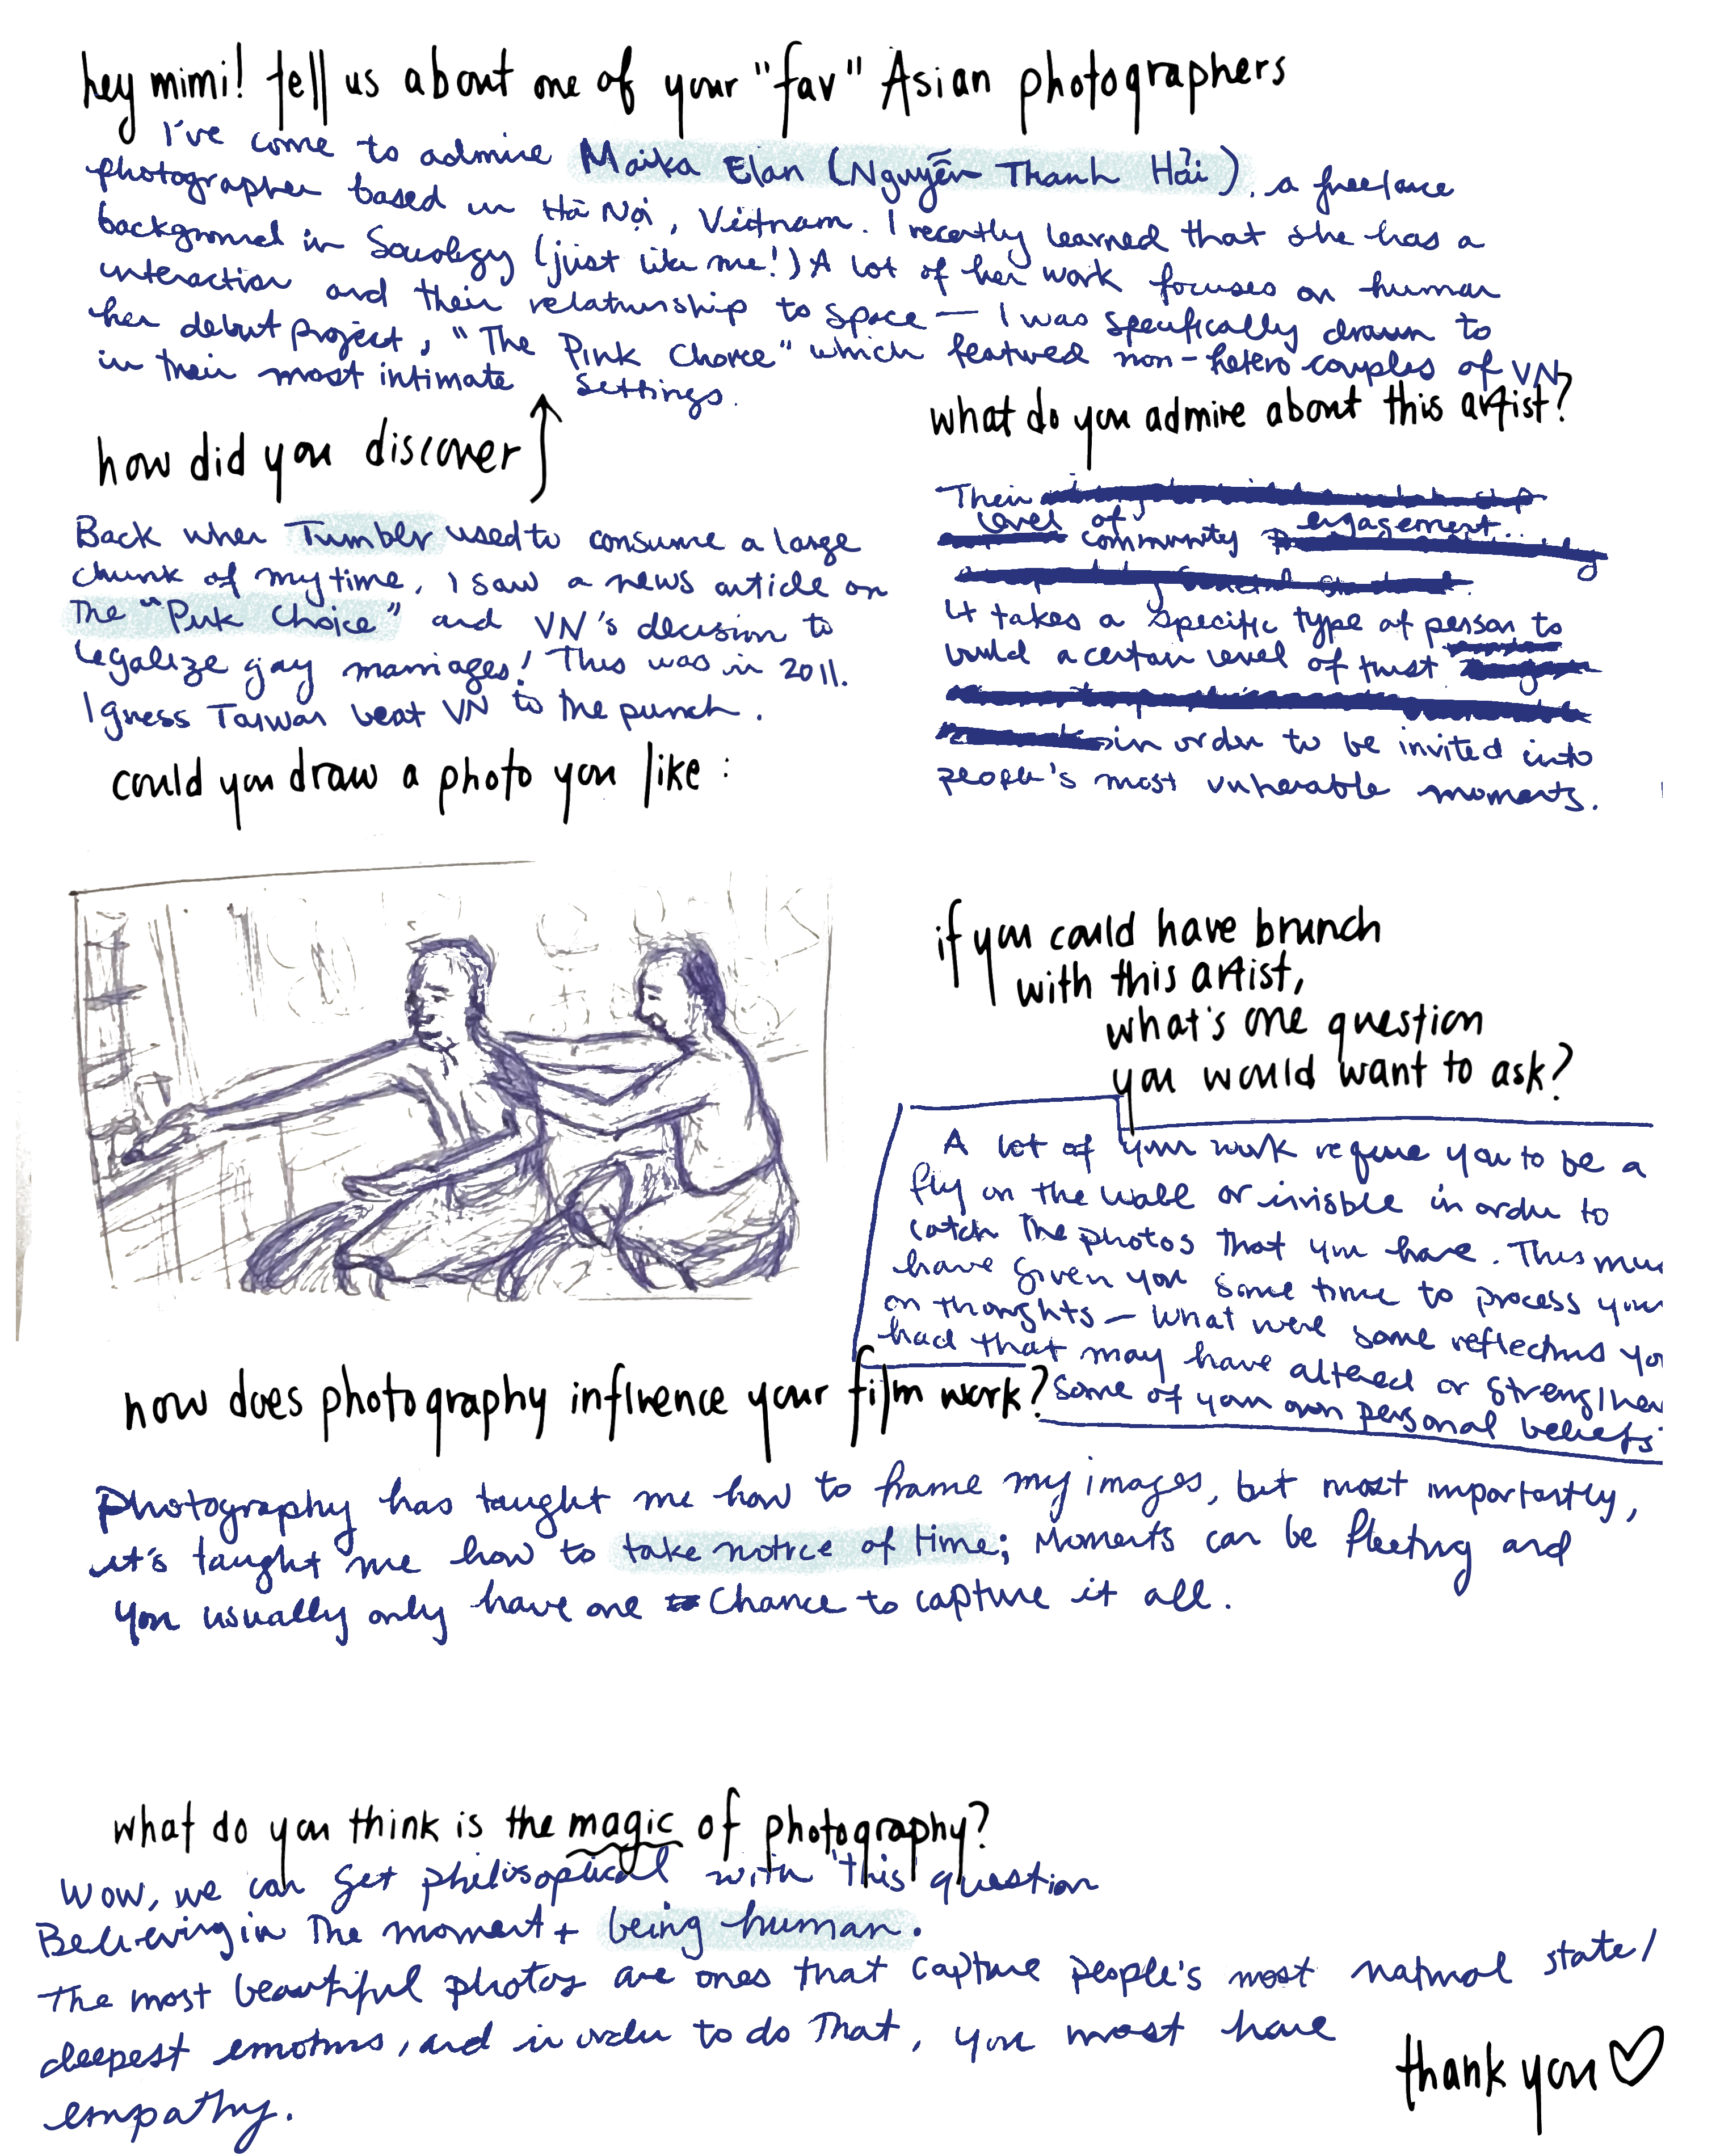 hey mimi! tell us about one of your "fav" Asian photographers
I've come to admire Maika Elan (Nguyễn Thanh Hải), a freelance
photographer based in Hà Nội, Vietnam. I recently learned that she has a
background in Sociology (just like me!) A lot of her work focuses on human
interaction and their relationship to space — I was specifically drawn to
her debut project, "The Pink Choice" which featured non-hetero couples of VN
in their most intimate settings.
how did you discover
Back when Tumblr used to consume a large
chunk of my time, I saw a news article on
The "Pink Choice" and VN's decision to
legalize gay marriages! This was in 2011.
I guess Taiwan beat VN to the punch.
what do you admire about this artist?
Their
level of community engagement.
It takes a specific type of person to
build a certain level of trust
in order to be invited into
people's most vulnerable moments.
could you draw a photo you like:
if you could have brunch
with this artist,
what's one question
you would want to ask?
A lot of your work require you to be a
fly on the wall or invisble in order to
catch the photos that you have. This mu
have given you some time to process your
on thoughts — What were some reflections yo
had that may have altered or strengthen
some of your own personal beliefs
how does photography influence your film work?
Photography has taught me how to frame my images, but most importantly,
it's taught me how to take notice of time; Moments can be fleeting and
you usually only have one chance to capture it all.
what do you think is the magic of photography?
Wow, we can get philisophical with this question
Believing in The moment + being human.
The most beautiful photos are ones that capture people's most natural state/
deepest emotions, and in order to do That, you most have
empathy.
thank you ♡